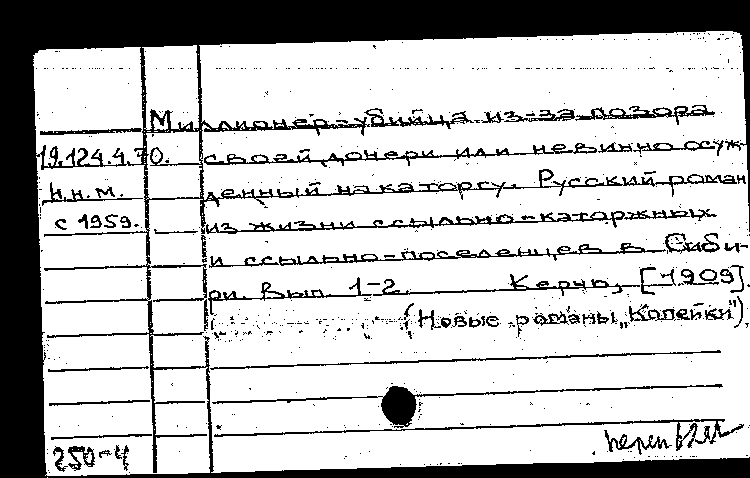 Миллионер-убийца из-за позора
19.124.4.70. своей дочери или невинно осуж-
н.н.м. денный на каторгу. Русский роман
с 1959. из жизни ссыльно-каторжных
и ссыльно-поселенцев в Сиби-
ри. Вып. 1-2. Керчь, [1909].
(Новые романы „Копейки").
250-4